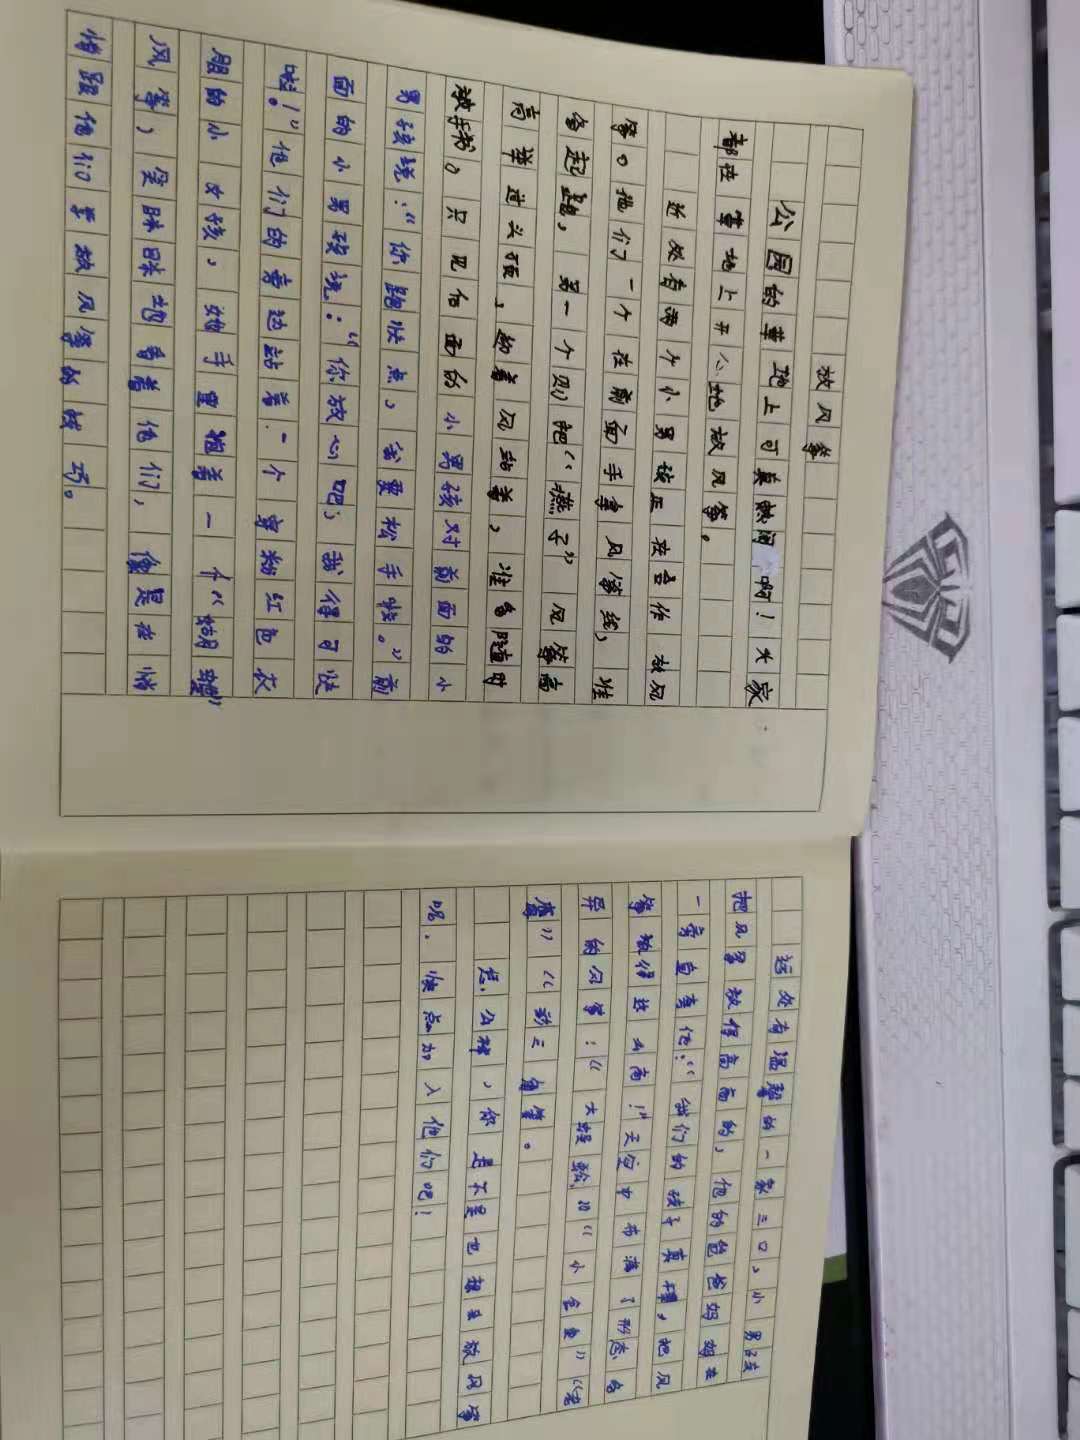 放风筝
公园的草地上可真热闹啊！大家
都在草地上开心地放风筝。
近处有两个小男孩正在合作放风
筝。他们一个在前面手拿风筝线，准
备起跑，另一个则把“燕子”风筝高
高举过头顶，迎着风站着，准备随时
放手我。只见后面的小男孩对前面的小
男孩说：“你跑快点，我要松手啦。”前
面的小男孩说：“你放心吧；我得可快
啦！”他们的旁边站着一个穿粉红色衣
服的小女孩，她手里抱着一个“蝴蝶”
风筝，笑眯眯地看着他们，像是在悄
悄跟他们学放风筝的技巧。
远处有温馨的一家三口，小男孩
把风筝放得高高的，他的爸爸妈妈在
一旁直夸他：“我们的孩子真棒，把风
筝放得这么高！”天空中布满了形态各
异的风筝：“大蜈蚣”“小金鱼”“老
鹰”“彩三角筝。
您，公样，你是不是也想来放风筝
呢，快点加入他们吧！